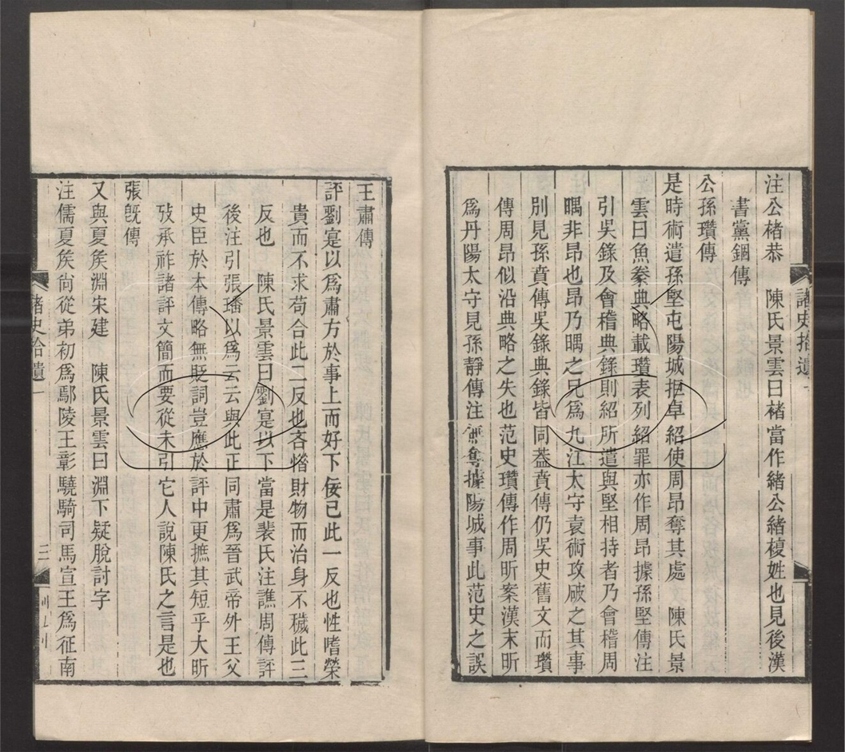 注公楮恭　陳氏景雲曰楮當作緒公緒複姓也見後漢
書黨錮傳
公孫瓚傳
是時術遣孫堅屯陽城拒卓紹使周昂奪其處　陳氏景
雲曰魚豢典略載瓚表列紹罪亦作周昂據孫堅傳注
引吳錄及會稽典錄則紹所遣與堅相持者乃會稽周
㬂非昂也昂乃㬂之兄爲九江太守袁術攻破之其事
別見孫賁傳吳錄典錄皆同葢賁傳仍吳史舊文而瓚
傳周昂似沿典略之失也范史瓚傳作周昕案漢末昕
爲丹陽太守見孫靜傳注無奪據陽城事此范史之誤
諸史拾遺一
王肅傳
評劉寔以爲肅方於事上而好下佞已此一反也性嗜榮
貴而不求苟合此二反也吝惜財物而治身不穢此三
反也　陳氏景雲曰劉寔以下當是裴氏注譙周傳評
後注引張璠以爲云云與此正同肅爲晉武帝外王父
史臣於本傳略無貶詞豈應於評中更摭其短乎大昕
攷承祚諸評文簡而要從未引它人說陳氏之言是也
張旣傳
又與夏矦淵宋建　陳氏景雲曰淵下疑脫討字
注儒夏矦尙從弟初爲鄢陵王彰驍騎司馬宣王爲征南
諸史拾遺一
三